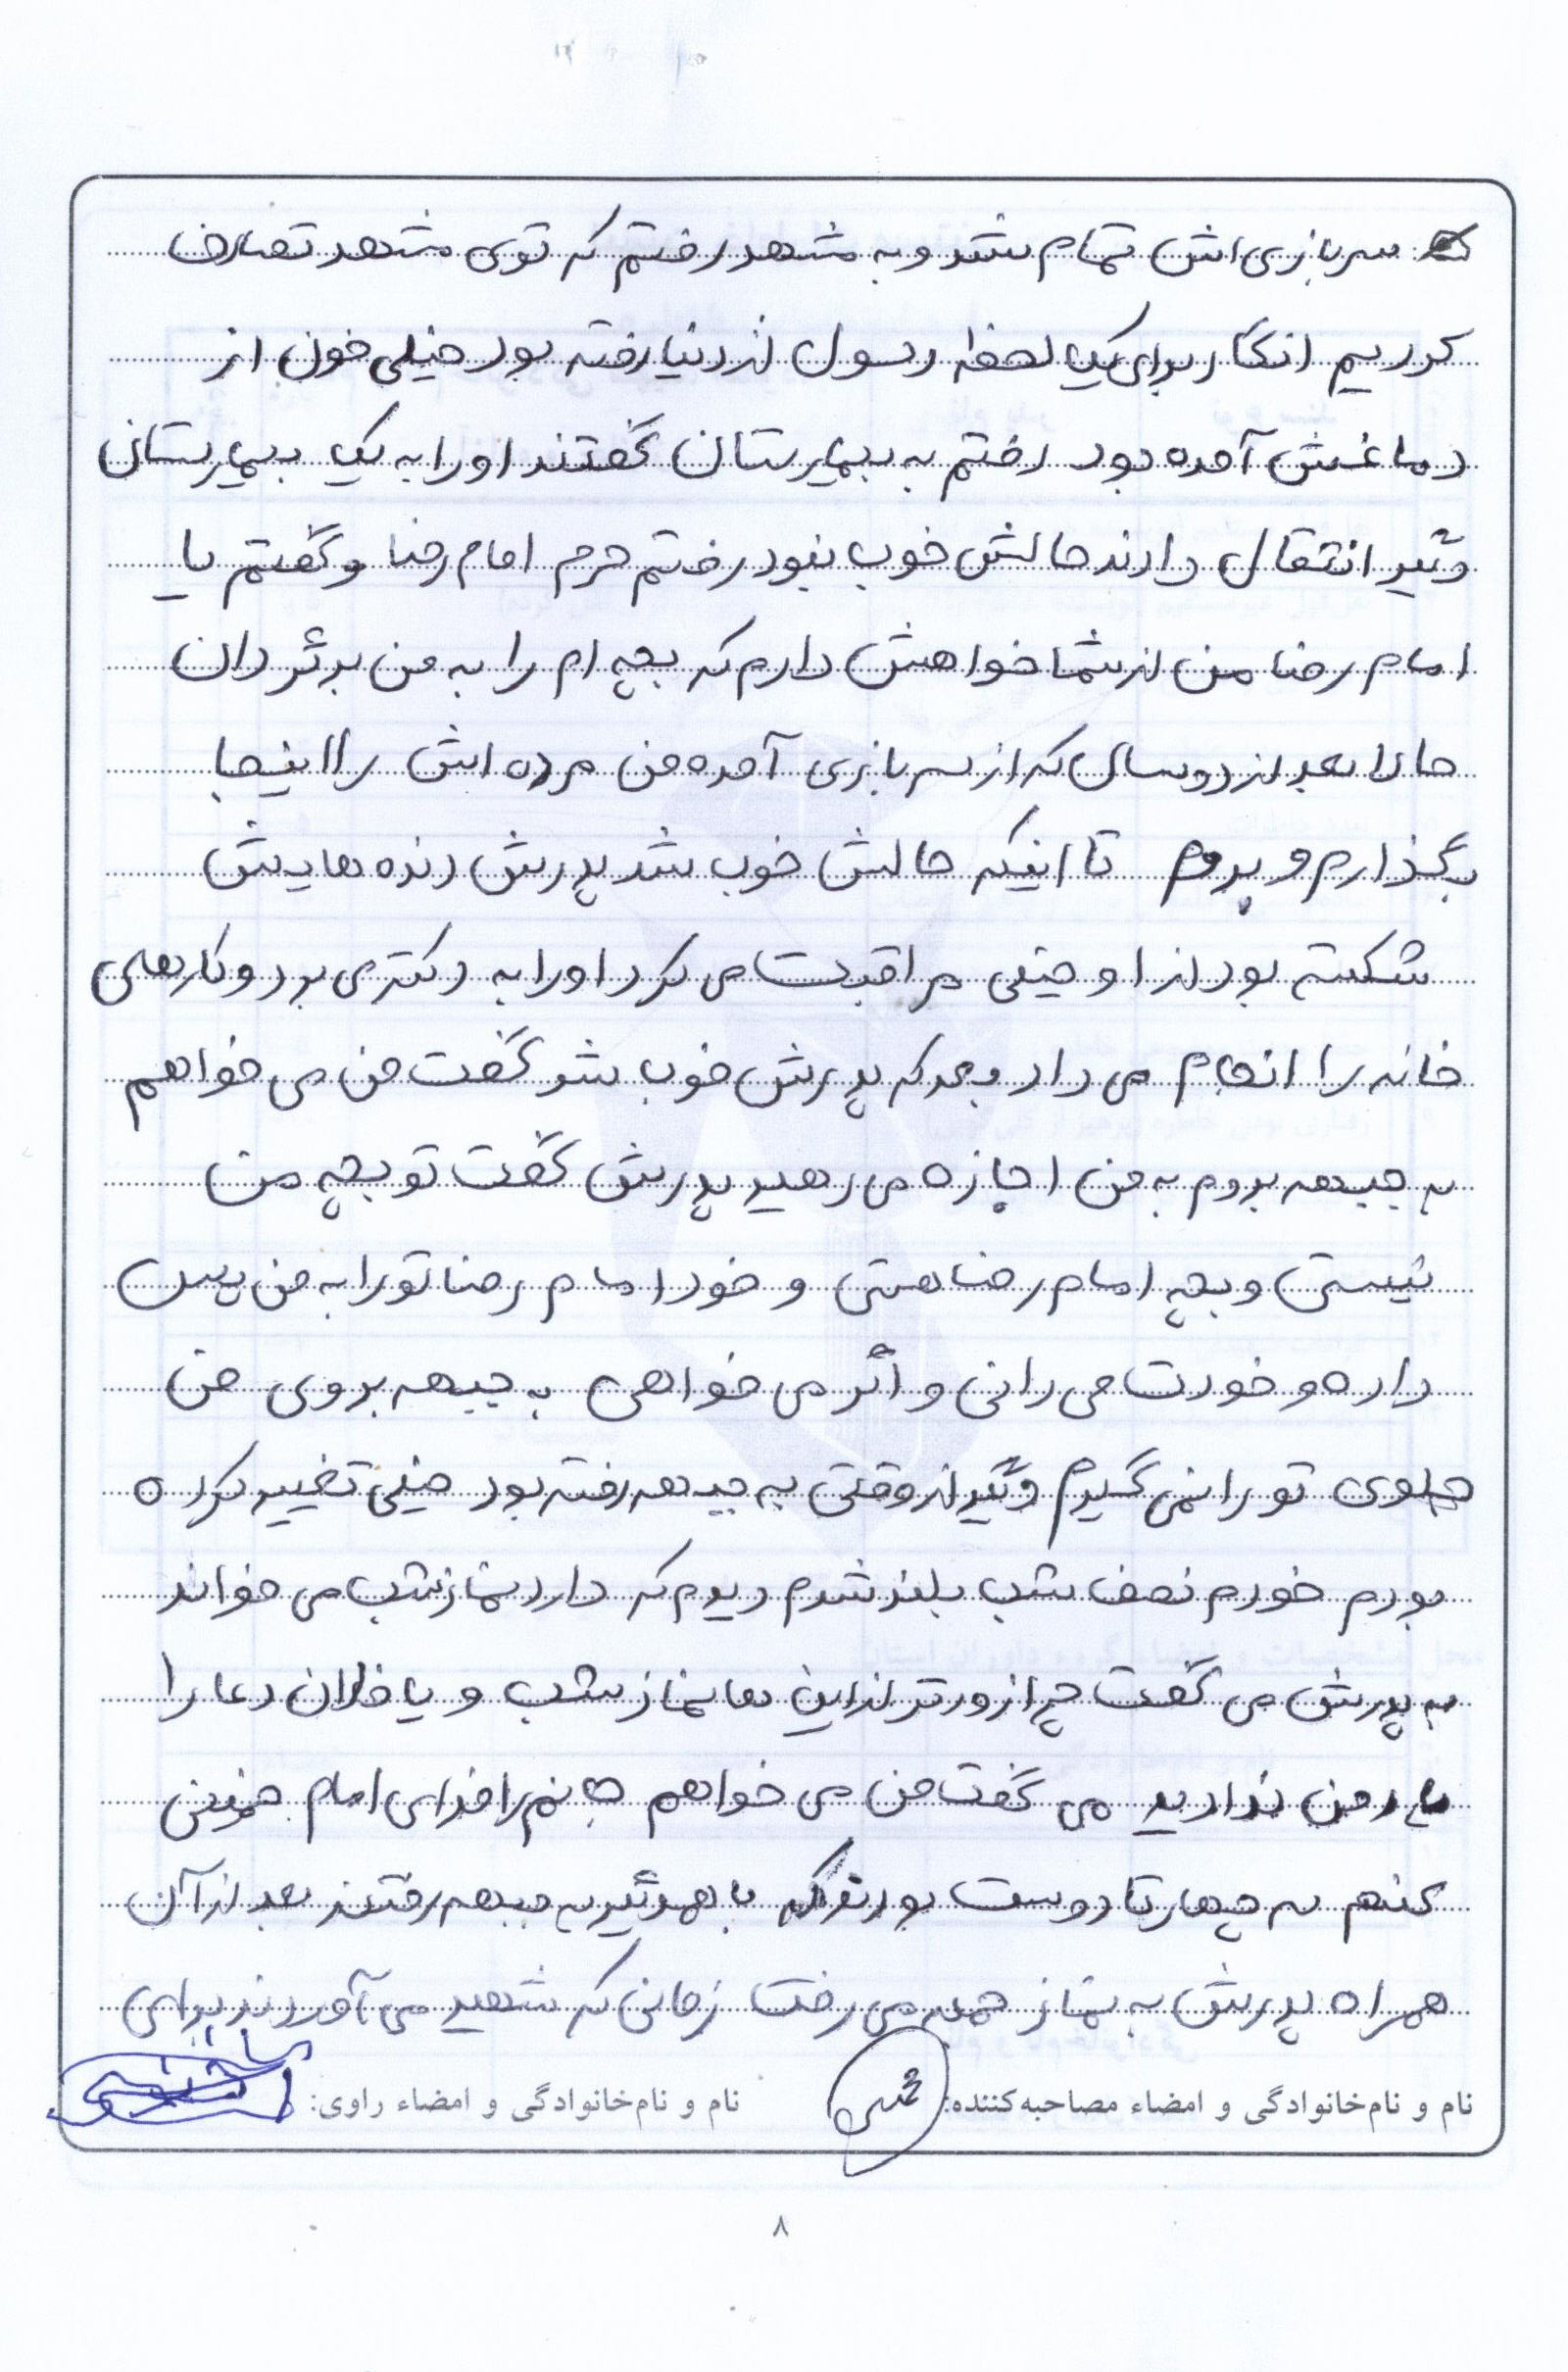 سربازی اش تمام شد و به مشهد رفتم که توی مشهد تصادف
کردیم انگار برای یک لحظه رسول از دنیا رفته بود خیلی خون از
دماغش آمده بود رفتم به بیمارستان گفتند او را به یک بیمارستان
دیگر انتقال دادند حالش خوب نبود رفتم حرم امام رضا و گفتم یا
امام رضا من از شما خواهش دارم که بچه ام را به من برگردان
حالا بعد از دو سال که از سربازی آمده من مرده اش را اینجا
بگذارم و بروم تا اینکه حالش خوب شد پدرش دنده هایش
شکسته بود از او خیلی مراقبت می کرد او را به دکتری برد و کارهای
خانه را انجام می داد بعد که پدرش خوب شد گفت من می خواهم
به جبهه بروم به من اجازه می دهید پدرش گفت تو بچه من
نیستی و بچه امام رضا هستی و خود امام رضا تو را به من پس
داده و خودت می دانی و اگر می خواهی به جبهه بروی من
جلوی تو را نمی گیرم دیگر از وقتی به جبهه رفته بود خیلی تغییر کرده
بودم خودم نصف شب بلند شدم دیدم که دارد نماز شب می خواند
به پدرش می گفت چرا زودتر از این ها نماز شب و یا فلان دعا را
یاد من ندادید می گفت من می خواهم جانم را فدای امام خمینی
کنم سه چهار تا دوست بودند که با همدیگر به جبهه رفتند بعد از آن
همراه پدرش به نماز جمعه می رفت زمانی که شهید می آوردند برای
نام و نام‌خانوادگی و امضاء مصاحبه‌کننده: نام و نام‌خانوادگی و امضاء راوی:
۸